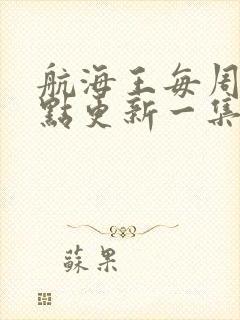 航海王每周
點更新一集
蘇果